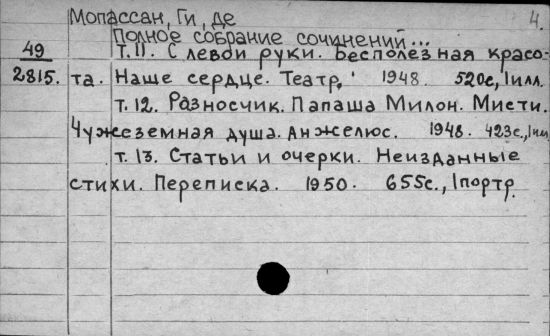 Мопассан, Ги, де 4.
Полное собрание сочинений...
49 Т.11. С левой руки. Бесполезная красо-
2815. та. Наше сердце. Театр. 1948. 520с, 1илл.
т.12. Разносчик. Папаша Милон. Мисти.
Чужеземная душа. Анжелюс. 1948. 423с., 1илл
т.13. Статьи и очерки. Неизданные
стихи. Переписка. 1950. 655с., 1портр.